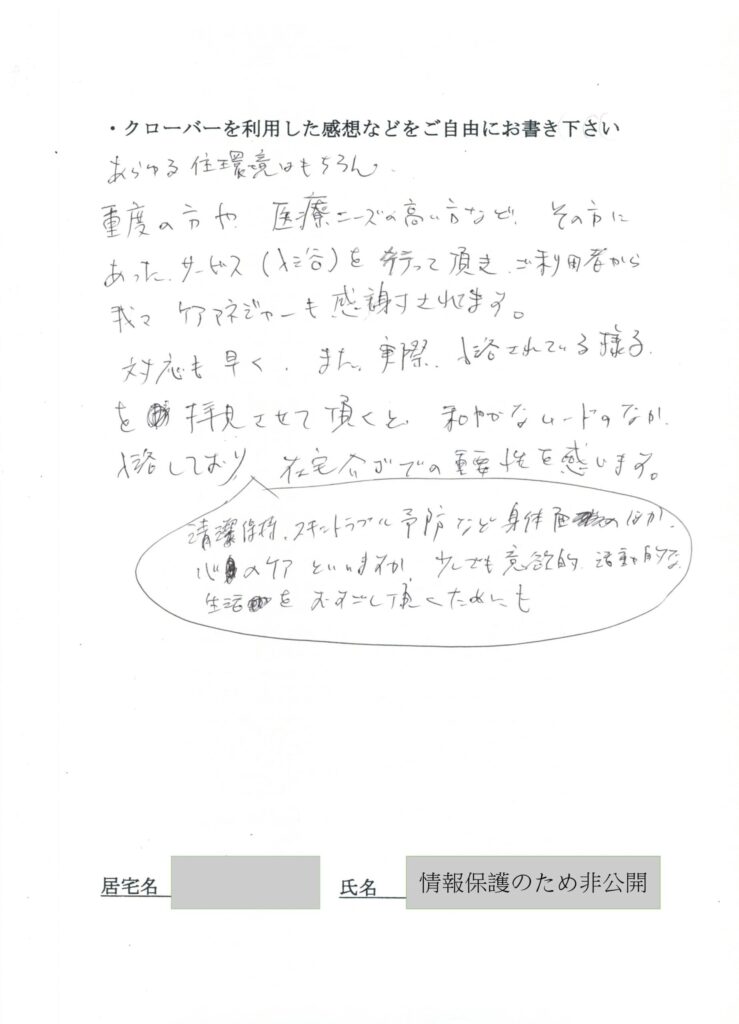 ・クローバーを利用した感想などをご自由にお書き下さい
あらゆる住環境はもちろん、
重度の方や、医療ニーズの高い方など、その方に
あった、サービス(入浴)を行って頂き、ご利用者から
我々ケアマネジャーも感謝されます。
対応も早く、また、実際、入浴されている様子
を拝見させて頂くと、和やかなムードのなか、
入浴しており、在宅介護での重要性を感じます。
清潔保持、スキントラブル予防など身体面のほか、
心のケアといいますか、少しでも意欲的、活動的な
生活をおすごし頂くためにも
居宅名
氏名 情報保護のため非公開